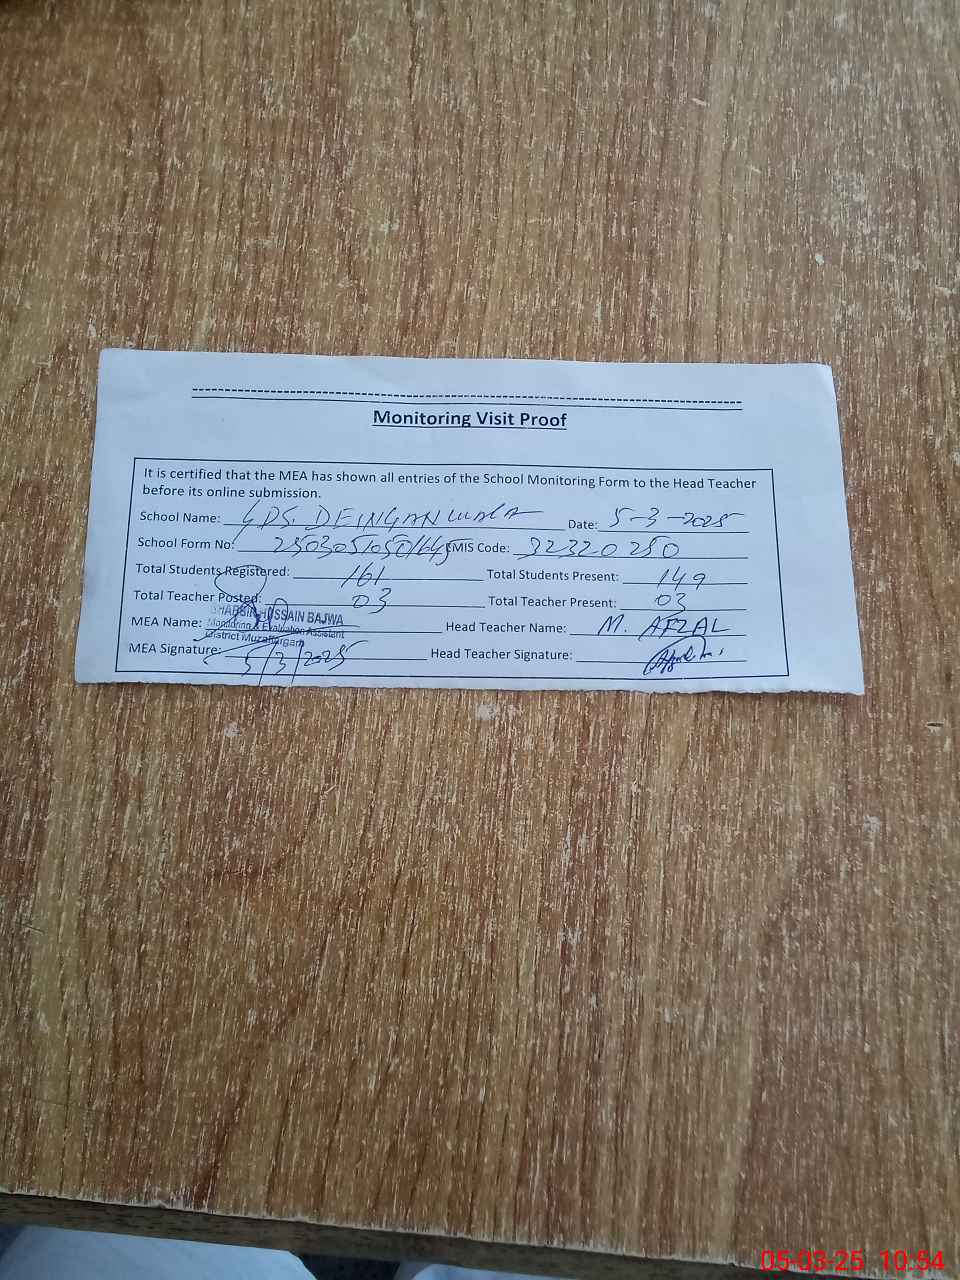 Monitoring Visit Proof
It is certified that the MEA has shown all entries of the School Monitoring Form to the Head Teacher
before its online submission.
School Name: GPS. DEINGANWALA Date: 5-3-2025
School Form No: EMIS Code: 32320250
Total Students Registered: 161 Total Students Present: 149
Total Teacher Posted: 03 Total Teacher Present: 03
SHABBIR HUSSAIN BAJWA
MEA Name: Monitoring & Evaluation Assistent Head Teacher Name: M. AFZAL
District Muzaffargarh
MEA Signature: 5/3/2025 Head Teacher Signature:
05-03-25 10:54